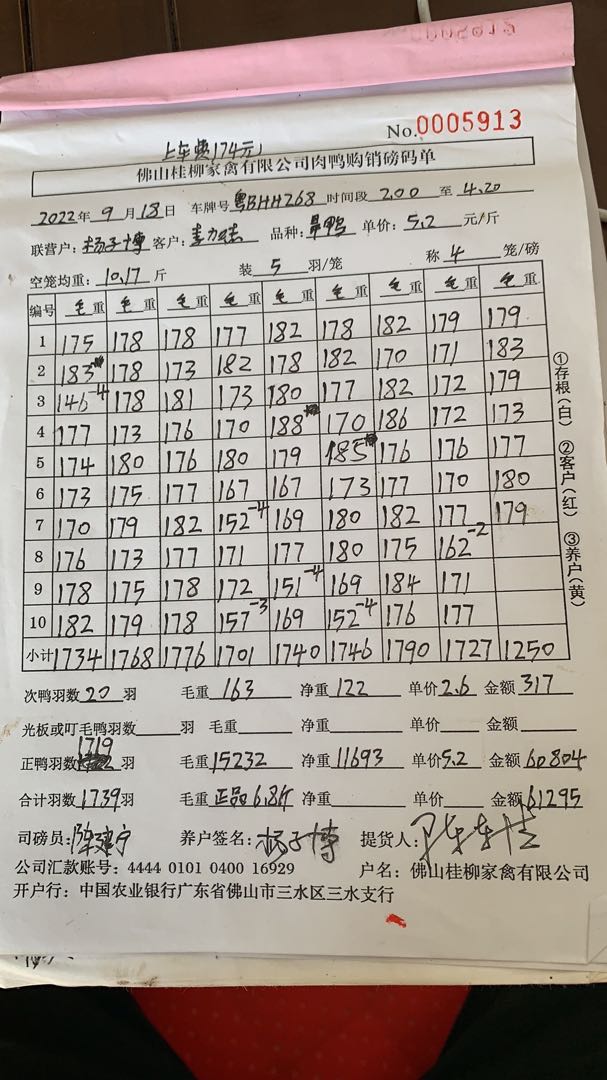 No.0005913
上车费174元
佛山桂柳家禽有限公司肉鸭购销磅码单
2022年 9月18日 车牌号粤BHH268 时间段 2.00 至 4.20
联营户:杨子博 客户: 品种: 单价:5.2 元/斤
空笼均重:10.17斤 装 5 羽/笼 称 4 笼/磅
编号 毛重 毛重 毛重 毛重 毛重 毛重 毛重 毛重 毛重
1 175 178 178 177 182 178 182 179 179
2 183 178 173 182 178 182 170 171 183
3 146-4 178 181 173 180 177 182 172 179
4 177 173 176 170 188 170 186 172 173
5 174 180 176 180 179 185 176 176 177
6 173 175 177 167 167 173 177 170 180
7 170 179 182 152-4 169 180 182 177 179
8 176 173 177 171 177 180 175 162-2
9 178 175 178 172 151-4 169 184 171
10 182 179 178 157-3 169 152-4 176 177
小计 1734 1768 1776 1701 1740 1746 1790 1727 1250
①存根(白) ②客户(红) ③养户(黄)
次鸭羽数20羽 毛重163 净重122 单价2.6 金额317
光板或叮毛鸭羽数 羽 毛重 净重 单价 金额
正鸭羽数1719羽 毛重15232 净重11693 单价5.2 金额60804
合计羽数1739羽 毛重正品6.8斤 净重 单价 金额61295
司磅员:陈建宁 养户签名:杨子博 提货人:
公司汇款账号:4444 0101 0400 16929 户名:佛山桂柳家禽有限公司
开户行:中国农业银行广东省佛山市三水区三水支行